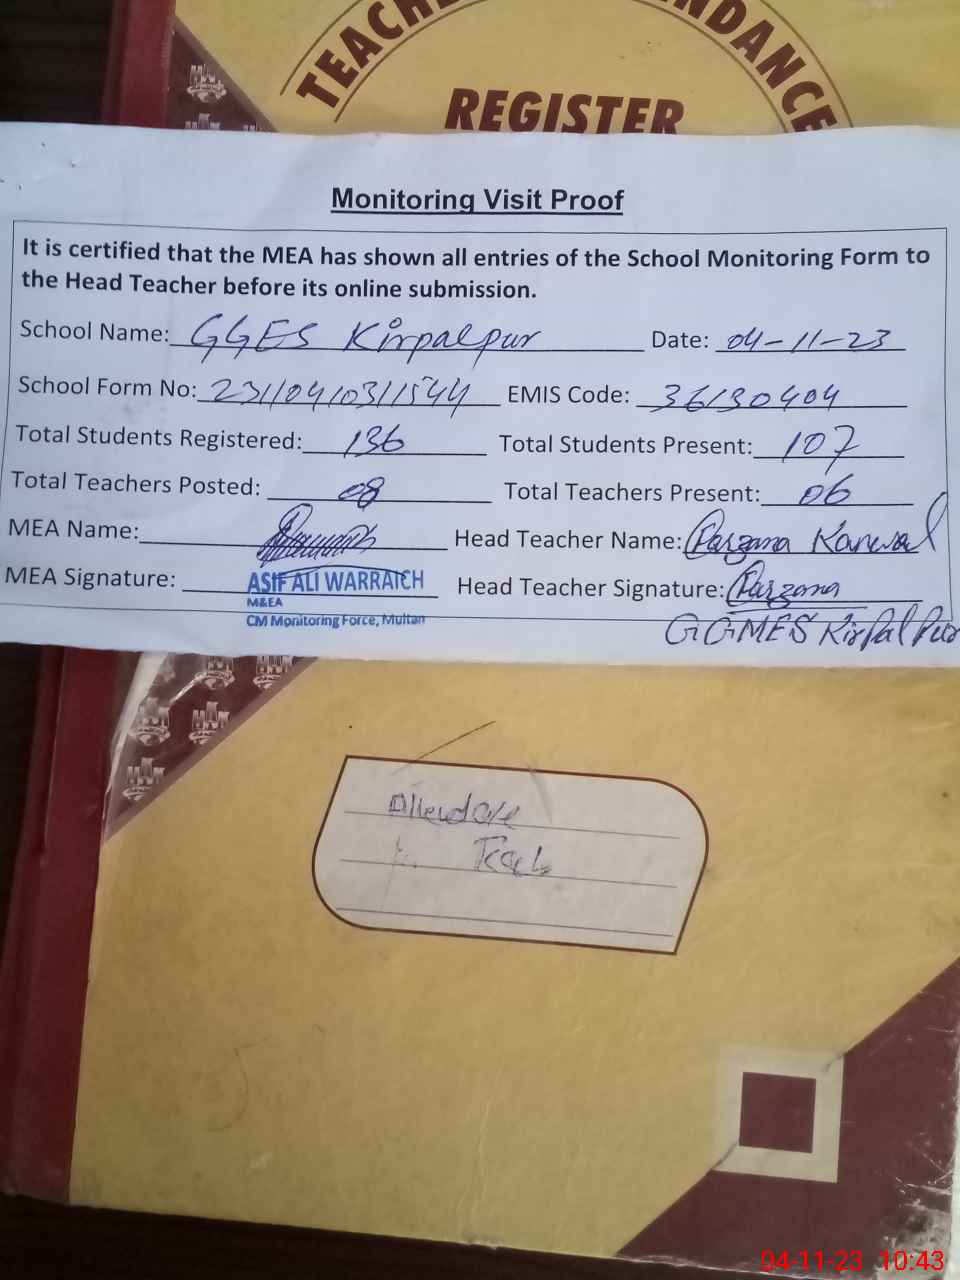 TEACHE NDANCE
REGISTER
Monitoring Visit Proof
It is certified that the MEA has shown all entries of the School Monitoring Form to
the Head Teacher before its online submission.
School Name: GGES Kirpalpur Date: 04-11-23
School Form No: 23110410311544 EMIS Code: 36130404
Total Students Registered: 136 Total Students Present: 107
Total Teachers Posted: 08 Total Teachers Present: 06
MEA Name: Head Teacher Name: Parzana Kanwal
MEA Signature: ASIF ALI WARRAICH Head Teacher Signature: Parzana
M&EA
CM Monitoring Force, Multan
GGMES KirPalPur
Teach
04-11-23 10:43